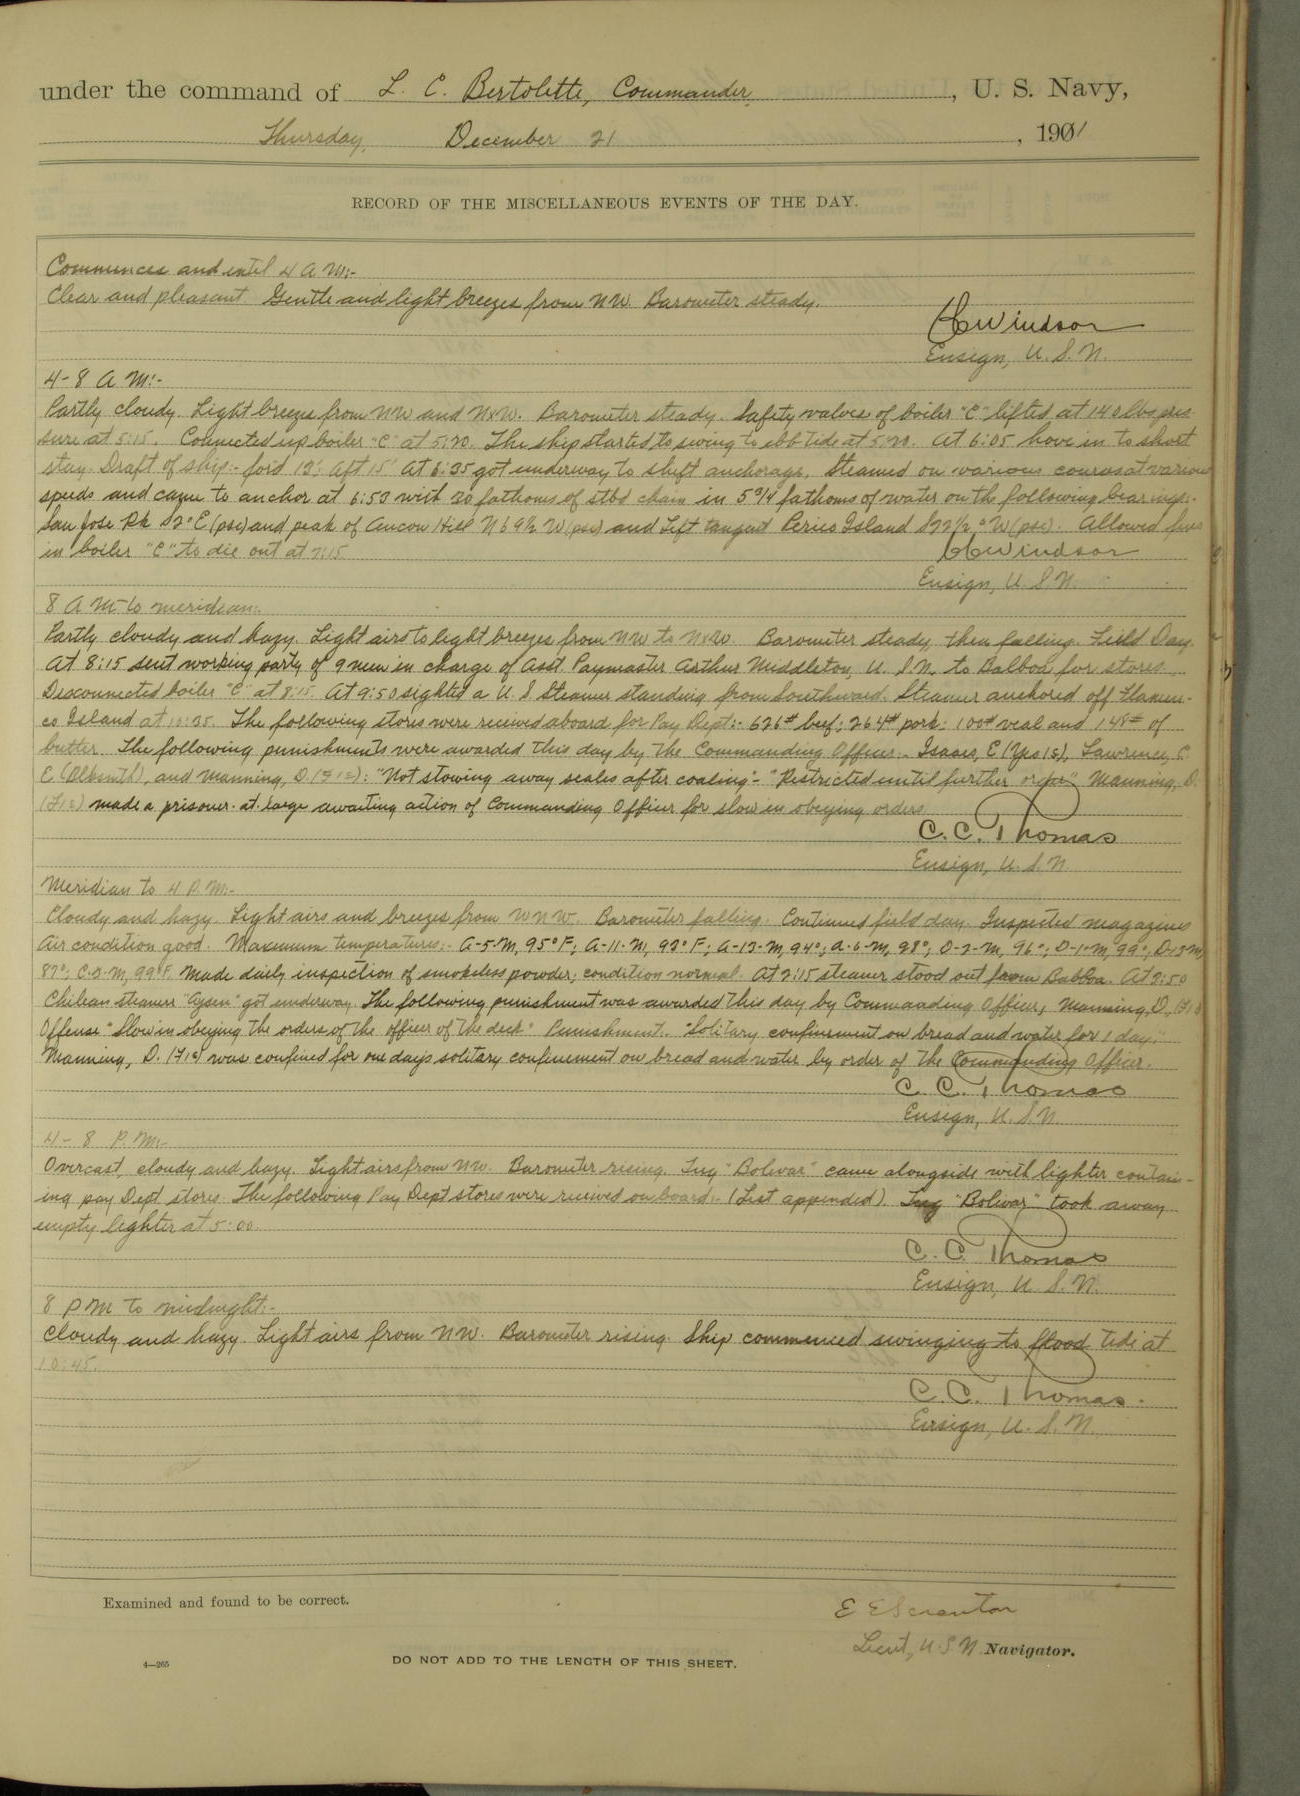 under the command of L. C. Bertolette, Commander, U. S. Navy,
Thursday, December 21, 1901
RECORD OF THE MISCELLANEOUS EVENTS OF THE DAY.
Commences and until 4 A M:-
Clear and pleasant. Gentle and light breezes from NW. Barometer steady.
Windsor
Ensign, U. S. N.
4-8 A M:-
Partly cloudy. Light breeze from NW and NxW. Barometer steady. Safety valves of boiler "C" lifted at 140 lbs pres-
sure at 5:15. Connected up boiler "C" at 5:20. The ship started to swing to ebb tide at 5:20. At 6:05 hove in to short
stay. Draft of ship:- for'd 12', Aft 15' At 6:35 got underway to shift anchorage. Steamed on various courses at various
speeds and came to anchor at 6:53 with 30 fathoms of stbd chain in 5 3/4 fathoms of water on the following bearings:-
San Jose Rk S2°E (psc) and peak of Ancon Hill N69½ W (psc) and Left tangent Perico Island S22½°W (psc). Allowed fires
in boiler "C" to die out at 7:15
Windsor
Ensign, U. S. N.
8 A M to meridian:-
Partly cloudy and hazy. Light airs to light breezes from NW to NxW. Barometer steady, then falling. Field Day.
At 8:15 sent working party of 9 men in charge of Asst Paymaster Arthur Middleton, U. S. N. to Balboa for stores.
Disconnected boiler "C" at 8:15. At 9:50 sighted a U. S Steamer standing from Southward. Steamer anchored off Flamen-
co Island at 10:35. The following stores were received aboard for Pay Dept:- 626# beef; 264# pork; 100# veal and 148# of
butter. The following punishments were awarded this day by the Commanding Officer:- Isaacs, E (Yeo 1c), Lawrence, C
E (Blksmth), and Manning, D (F1c): "Not stowing away scales after coaling"- "Restricted until further orders" Manning, D.
(F1c) made a prisoner-at-large awaiting action of Commanding Officer for slow in obeying orders
C. C. Thomas
Ensign, U. S. N.
Meridian to 4 P. M:-
Cloudy and hazy. Light airs and breezes from WNW. Barometer falling. Continued field day. Inspected magazines
Air condition good. Maximum temperatures:- A-5-M, 95°F; A-11-M, 92°F; A-13-M, 94°; A-6-M, 98°; D-2-M, 96°; D-1-M, 99°; D-13-M,
87°; C-2-M, 99°F. Made daily inspection of smokeless powder; condition normal. At 2:15 steamer stood out from Balboa. At 2:50
Chilean steamer "Aysen" got underway. The following punishment was awarded this day by Commanding Officer, Manning, D, (F1c)
Offense "Slow in obeying the orders of the officer of the deck" Punishment. "Solitary confinement on bread and water for 1 day."
Manning, D. (F1c) was confined for one days solitary confinement on bread and water by order of the Commanding Officer.
C. C. Thomas
Ensign, U. S. N.
4-8 P. M:-
Overcast, cloudy and hazy. Light airs from NW. Barometer rising. Tug "Bolivar" came alongside with lighter contain-
ing pay Dept stores. The following Pay Dept stores were received on board:- (List appended). Tug "Bolivar" took away
empty lighter at 5:00.
C. C. Thomas
Ensign, U. S. N.
8 P M to midnight:-
Cloudy and hazy. Light airs from NW. Barometer rising. Ship commenced swinging to flood tide at
10:45.
C. C. Thomas.
Ensign, U. S. N.
Examined and found to be correct.
E E Scranton
Lieut, U S N Navigator.
4—265
DO NOT ADD TO THE LENGTH OF THIS SHEET.